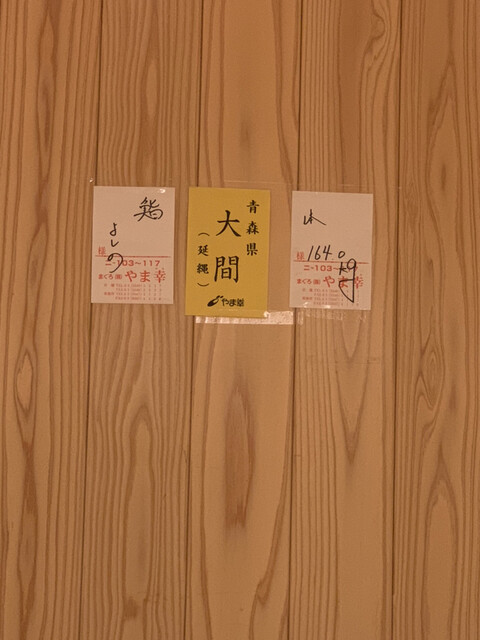 鮨
よしの
様
ニ-103〜117
まぐろ(株)やま幸
青森県
大間
(延縄)
やま幸
様
164.0
kg
ニ-103
まぐろ(株)やま幸